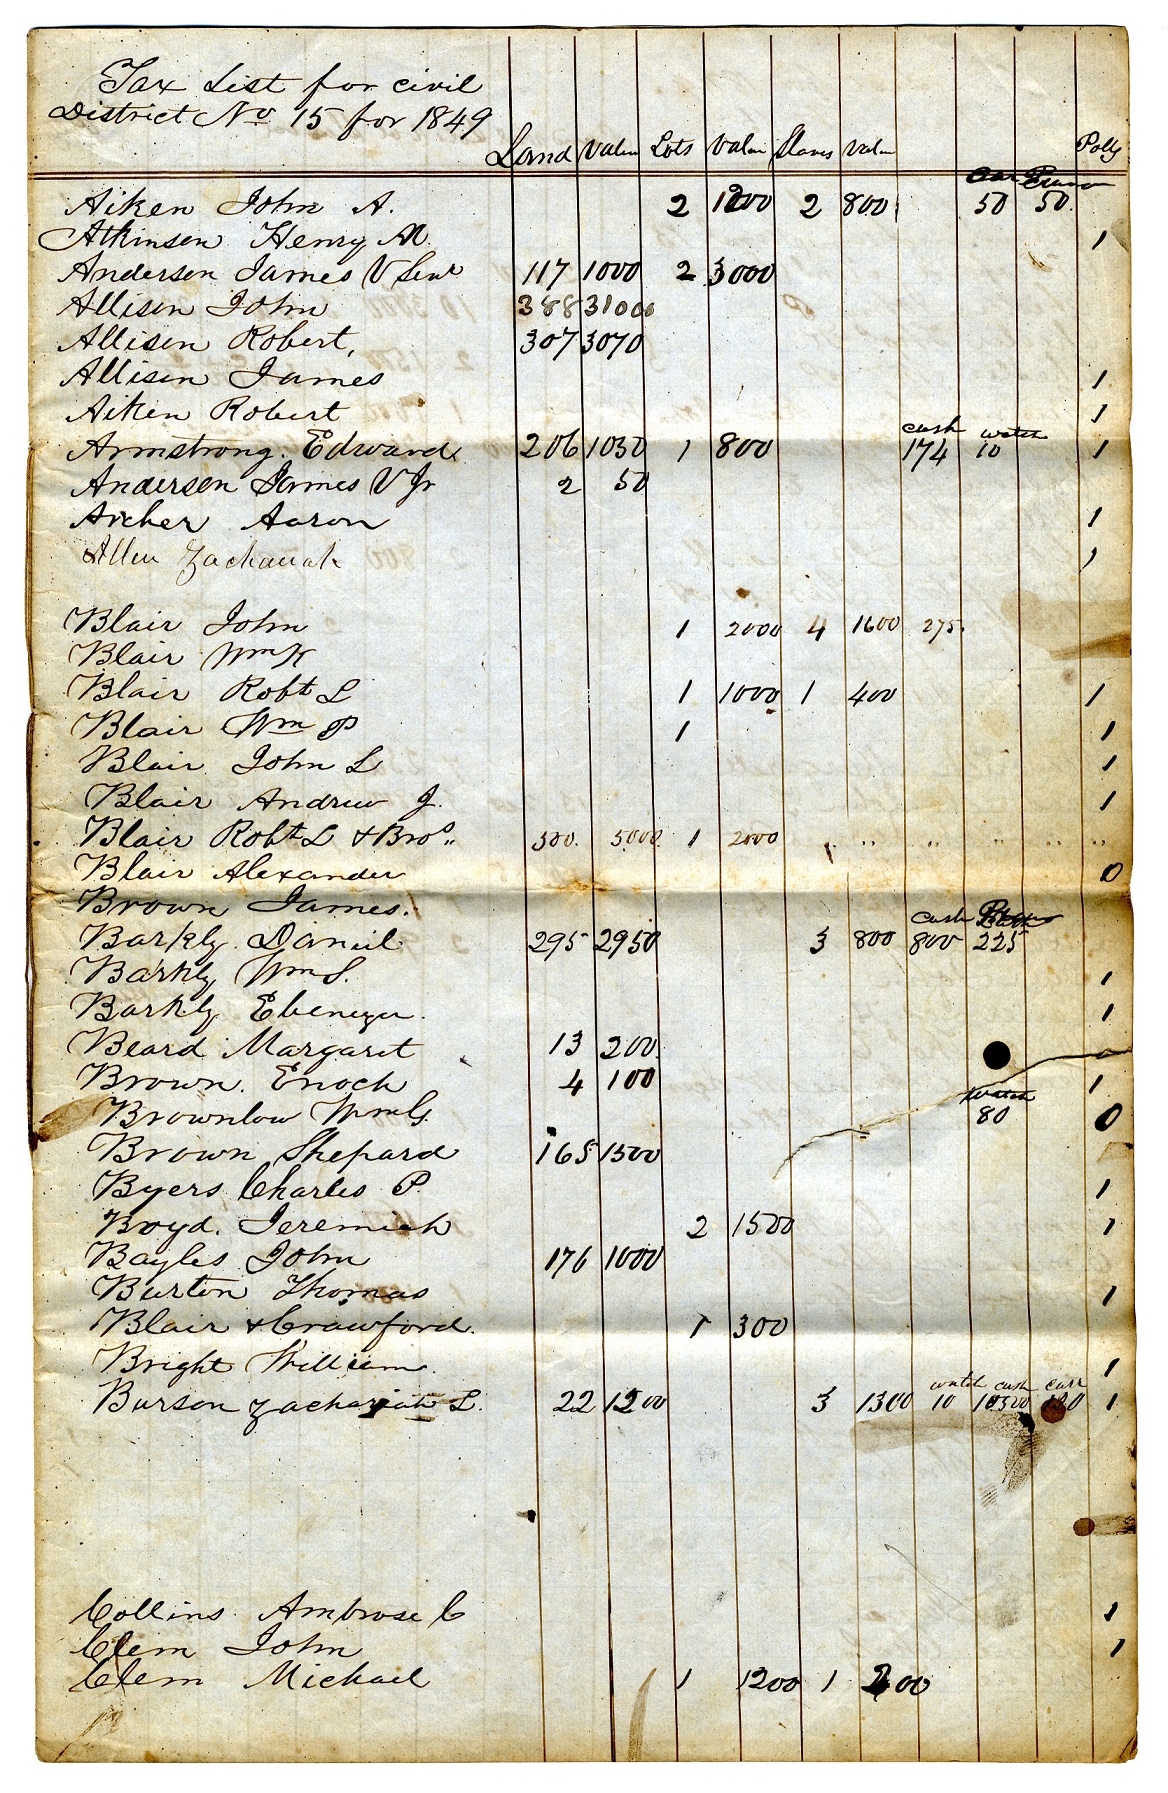 Tax List for civil
District No 15 for 1849
Land Value Lots Value Slaves Value Polls
Aiken John A. 2 1200 2 800 Car Piano 50 50
Atkinson Henry M. 1
Anderson James V Senr 117 1000 2 3000
Allison John 388 31000
Allison Robert, 307 3070
Allison James 1
Aiken Robert 1
cash watch
Armstrong. Edward 206 1030 1 800 174 10 1
Anderson James V Jr 2 50
Archer Aaron 1
Allen Zachariah 1
Blair John 1 2000 4 1600 275.
Blair Wm K
Blair Robt L 1 1000 1 400 1
Blair Wm P 1 1
Blair John L 1
Blair Andrew J. 1
Blair Robt L & Bros. 500. 5000. 1 2000
Blair Alexander 0
Brown James.
cash
Barkly Daniel 295 2950 3 800 800 225
Barkly Wm S. 1
Barkly Ebenezer. 1
Beard Margaret 13 200
Brown. Enoch 4 100 1
watch
Brownlow Wm G. 80 0
Brown Shepard 165 1500
Byers Charles P. 1
Boyd. Jeremiah 2 1500 1
Bayles John 176 1000
Burton Thomas 1
Blair & Crawford. 1 300
Bright William. 1
watch cash carr
Burson Zachariah L. 22 1200 3 1300 10 10300 130 1
Collins Ambrose C 1
Clem John 1
Clem Michael 1 1200 1 200